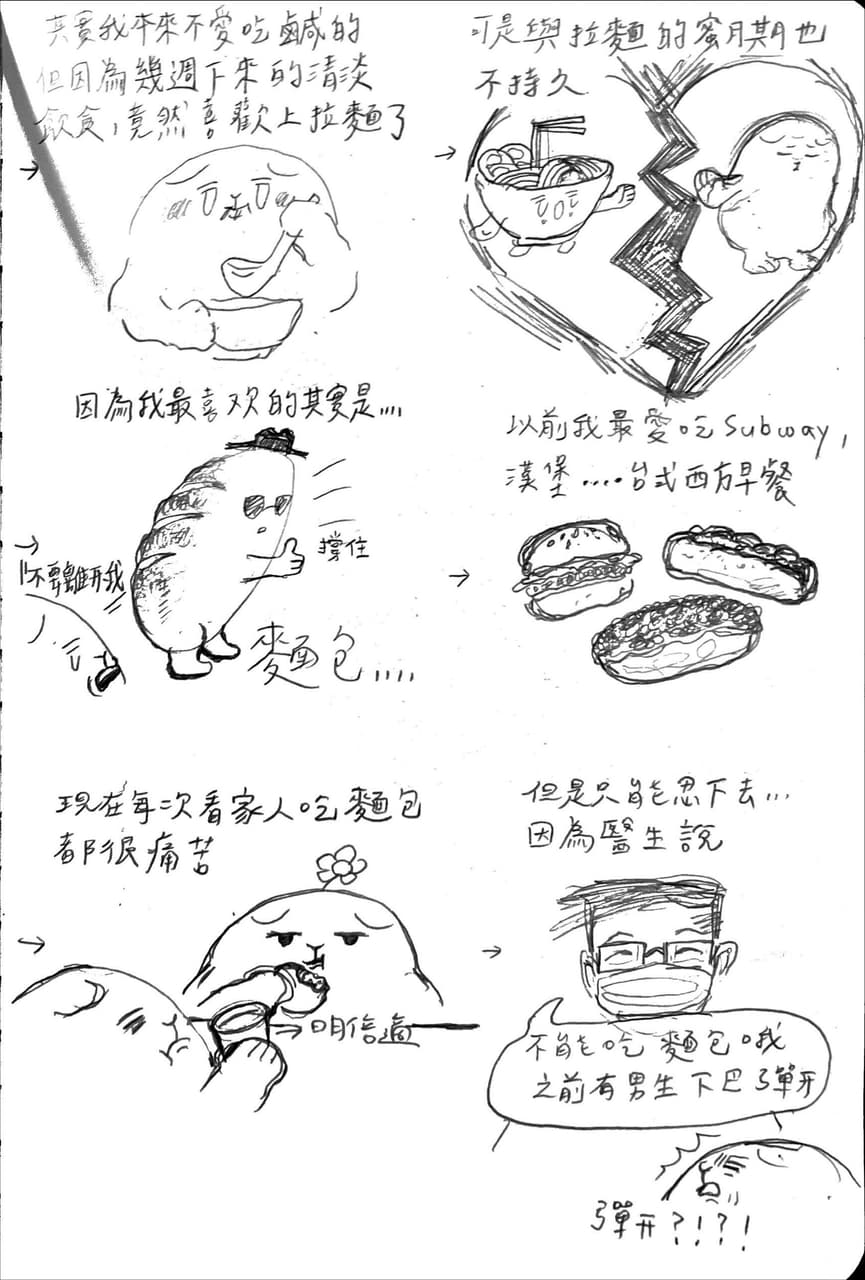 其實我本來不愛吃鹹的
但因為幾週下來的清淡
飲食，竟然喜歡上拉麵了
可是與拉麵的蜜月期也
不持久
因為我最喜欢的其實是....
"不要離开我
撐住
麵包....
以前我最愛吃Subway,
漢堡....台式西方早餐
現在每次看家人吃麵包
都很痛苦
明信適
但是只能忍下去...
因為醫生說
不能吃麵包哦
之前有男生下巴彈开
彈开?!?!